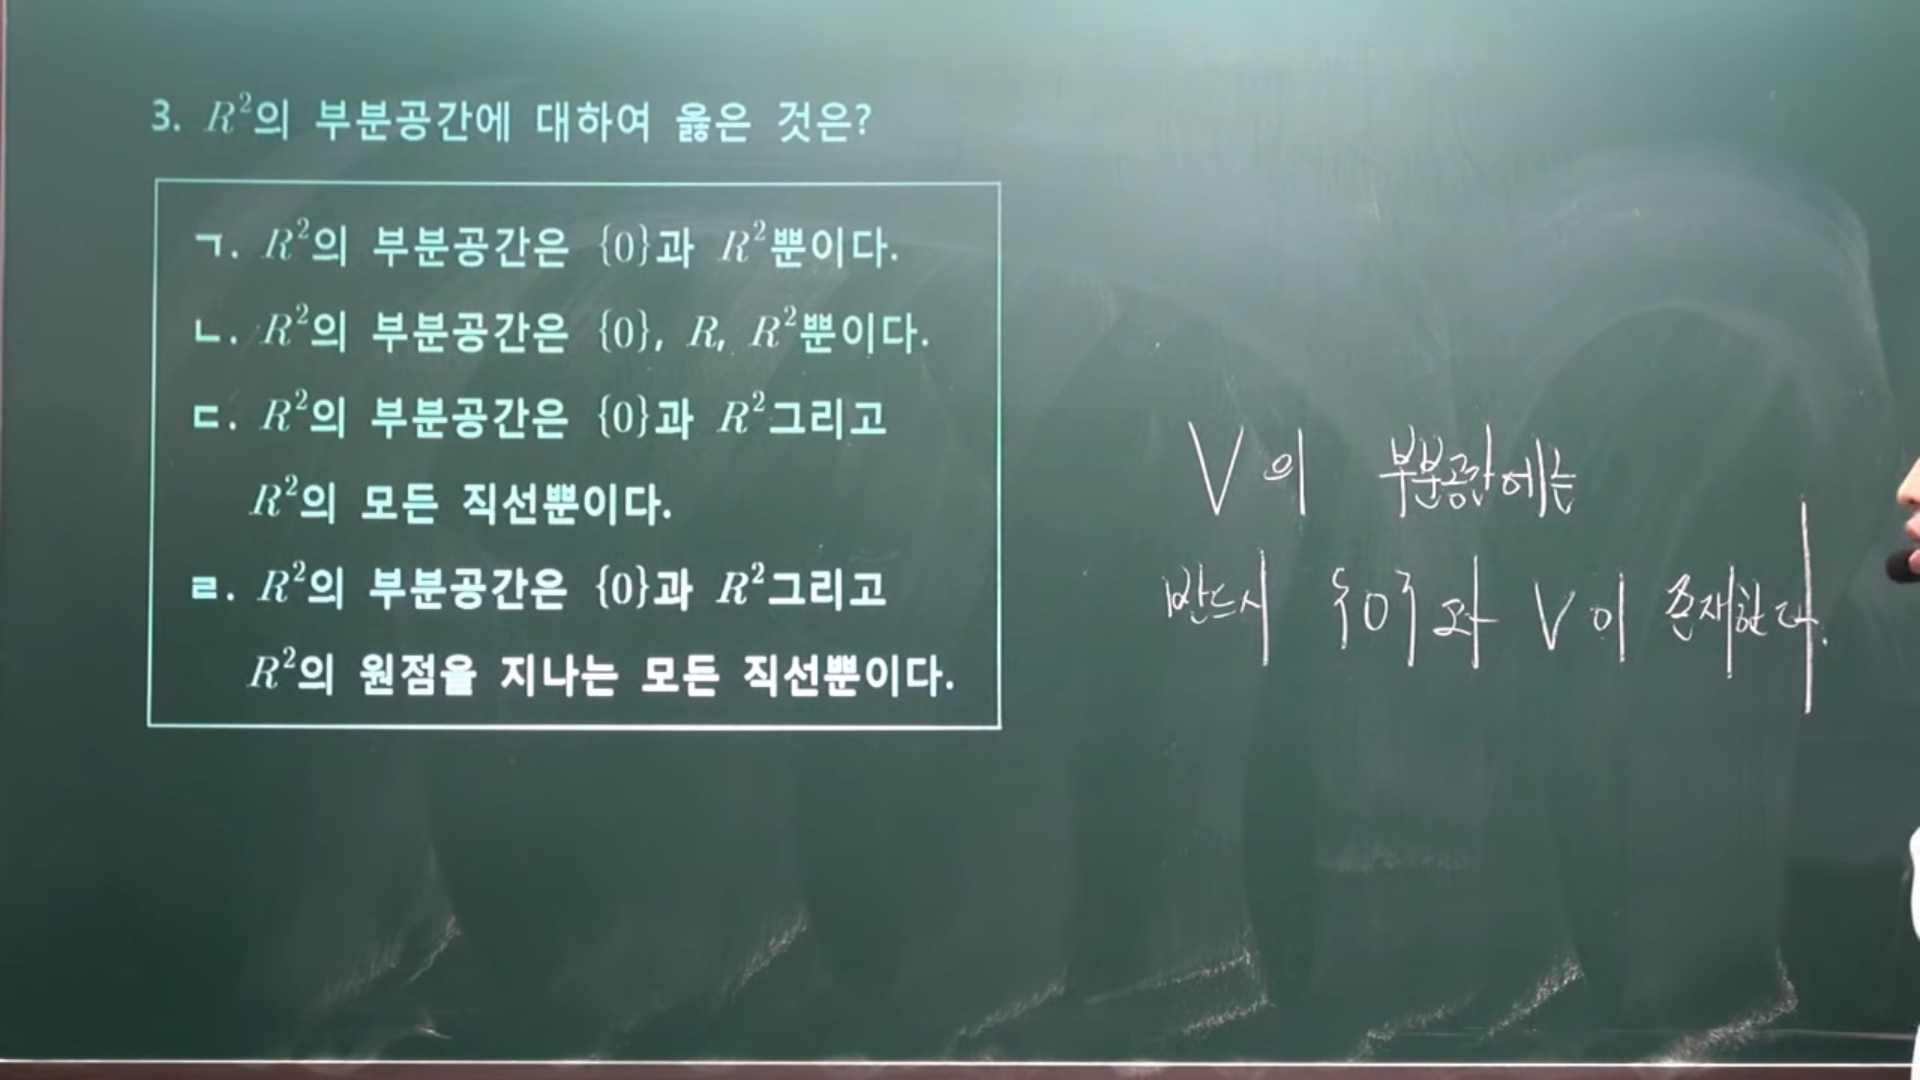 3. R²의 부분공간에 대하여 옳은 것은?
ㄱ. R²의 부분공간은 {0}과 R²뿐이다.
ㄴ. R²의 부분공간은 {0}, R, R²뿐이다.
ㄷ. R²의 부분공간은 {0}과 R²그리고
R²의 모든 직선뿐이다.
ㄹ. R²의 부분공간은 {0}과 R²그리고
R²의 원점을 지나는 모든 직선뿐이다.
V의 부분공간에는
반드시 {0}와 V이 존재한다.